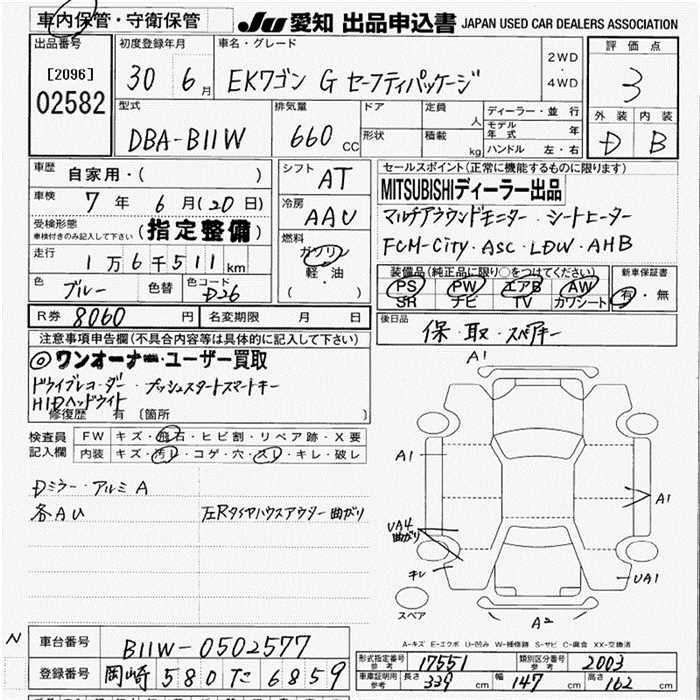 車内保管・守衛保管
JU 愛知 出品申込書 JAPAN USED CAR DEALERS ASSOCIATION
出品番号
[2096]
02582
初度登録年月
30 6月
車名・グレード
EKワゴン G セーフティパッケージ
2WD
・
4WD
評価点
3
外装 内装
D B
型式
DBA-B11W
排気量
660 CC
ドア
形状
定員 人
積載 kg
ディーラー・並行
モデル年式 年
ハンドル 左・右
車歴
自家用・( )
車検
7年 6月(20日)
受検形態
車検付きのみ記入して下さい
(指定整備)
走行
1万6千511km
色 ブルー 色替 色コード D26
シフト AT
冷房 AAU
燃料
ガソリン
軽・油
( ・ )
セールスポイント(正常に機能するものに限ります)
MITSUBISHIディーラー出品
マルチアラウンドモニター・シートヒーター
FCM-City・ASC・LDW・AHB
装備品(純正品に限り○をつけてください)
PS PW エアB AW
SR ナビ TV カワシート
新車保証書
有・無
R券 8060円 名変期限 月 日
後日品
保・取・スペアキー
注意事項申告欄(不具合内容等は具体的に記入して下さい)
◎ワンオーナー・ユーザー買取
ドライブレコーダー・プッシュスタートスマートキー
HIDヘッドライト
修復歴 有〔箇所 〕
検査員記入欄
FW キズ・飛石・ヒビ割・リペア跡・X要
内装 キズ・汚レ・コゲ・穴・スレ・キレ・破レ
Dミラー・アルミA
各AU 左Rタイヤハウスアウター曲がり
A1
A1
A1
UA4
曲がり
キレ
UA1
スペア
A2
A-キズ E-エクボ U-凹み W-補修跡 S-サビ C-腐食 XX-交換済
N
車台番号 B11W-0502577
登録番号 岡崎 580 た 6859
形式指定番号 参考 17551 類別区分番号 参考 2003
車庫証明用 参考 長さ 339cm 幅 147cm 高さ 162cm